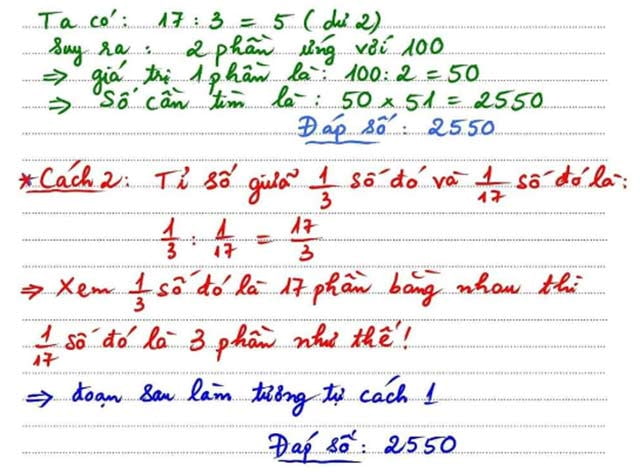 Ta có: 17 : 3 = 5 (dư 2)
Suy ra : 2 phần ứng với 100
⇒ giá trị 1 phần là: 100 : 2 = 50
⇒ Số cần tìm là : 50 × 51 = 2550
Đáp số : 2550
* Cách 2: Tỉ số giữa 1/3 số đó và 1/17 số đó là:
1/3 : 1/17 = 17/3
⇒ Xem 1/3 số đó là 17 phần bằng nhau thì
1/17 số đó là 3 phần như thế!
⇒ đoạn sau làm tương tự cách 1
Đáp số : 2550